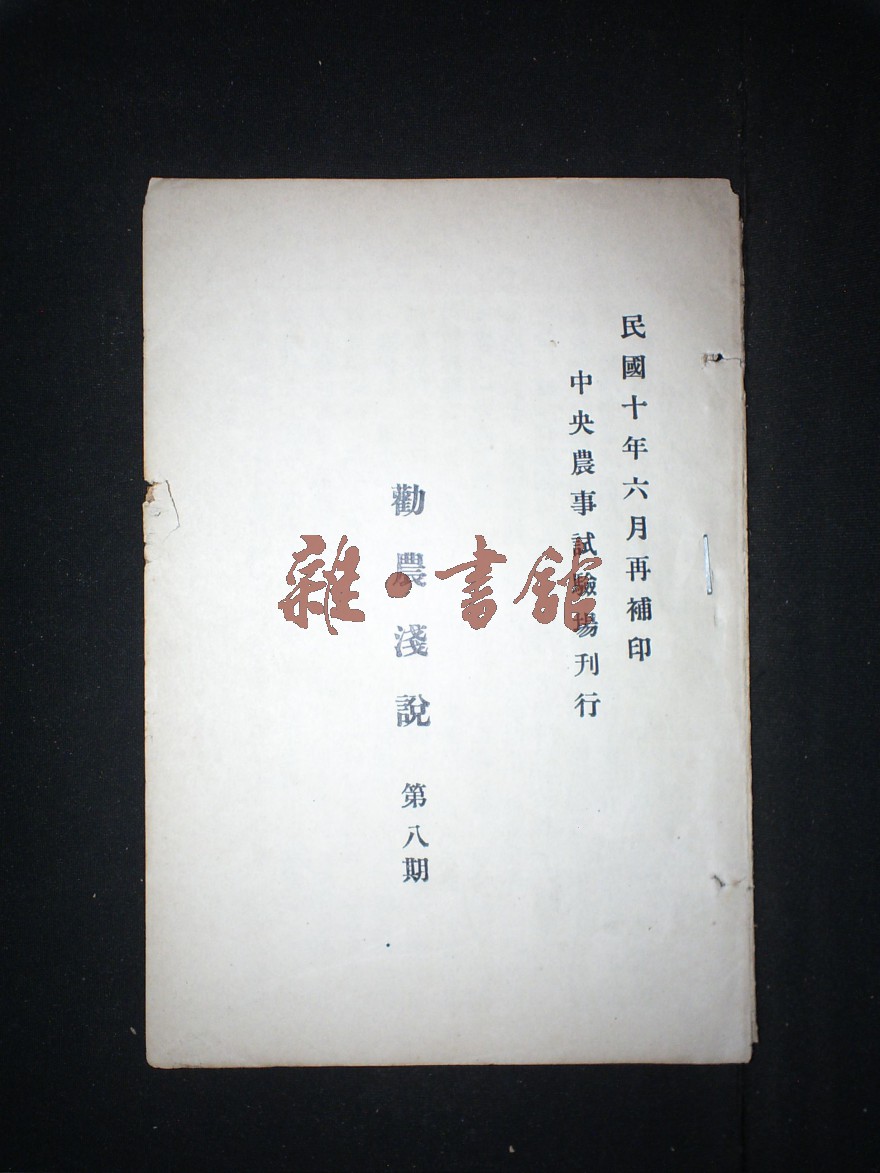 民國十年六月再補印
中央農事試驗場刊行
勸農淺說 第八期
雜·書館